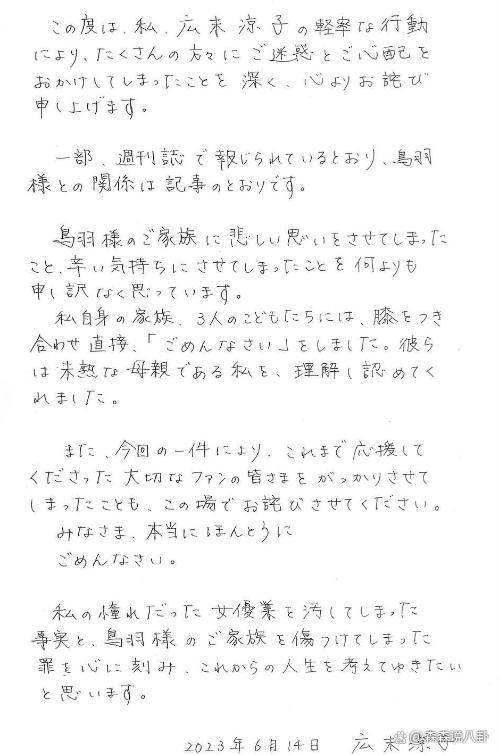 この度は、私、広末涼子の軽率な行動
により、たくさんの方々にご迷惑とご心配を
おかけしてしまったことを深く、心よりお詫び
申し上げます。
一部、週刊誌で報じられているとおり、鳥羽
様との関係は記事のとおりです。
鳥羽様のご家族に悲しい思いをさせてしまった
こと、辛い気持ちにさせてしまったことを何よりも
申し訳なく思っています。
私自身の家族、3人のこどもたちには、膝をつき
合わせ直接、「ごめんなさい」をしました。彼ら
は未熟な母親である私を、理解し認めてく
れました。
また、今回の一件により、これまで応援して
くださった大切なファンの皆さまをがっかりさせて
しまったことも、この場でお詫びさせてください。
みなさま、本当にほんとうに
ごめんなさい。
私の憧れだった女優業を汚してしまった
事実と、鳥羽様のご家族を傷つけてしまった
罪を心に刻み、これからの人生を考えてゆきたい
と思います。
2023年6月14日 広末涼子
@森森说八卦